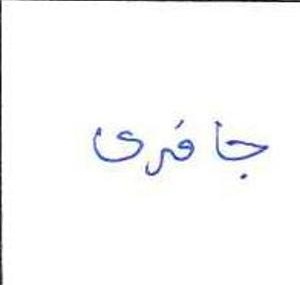 جافری